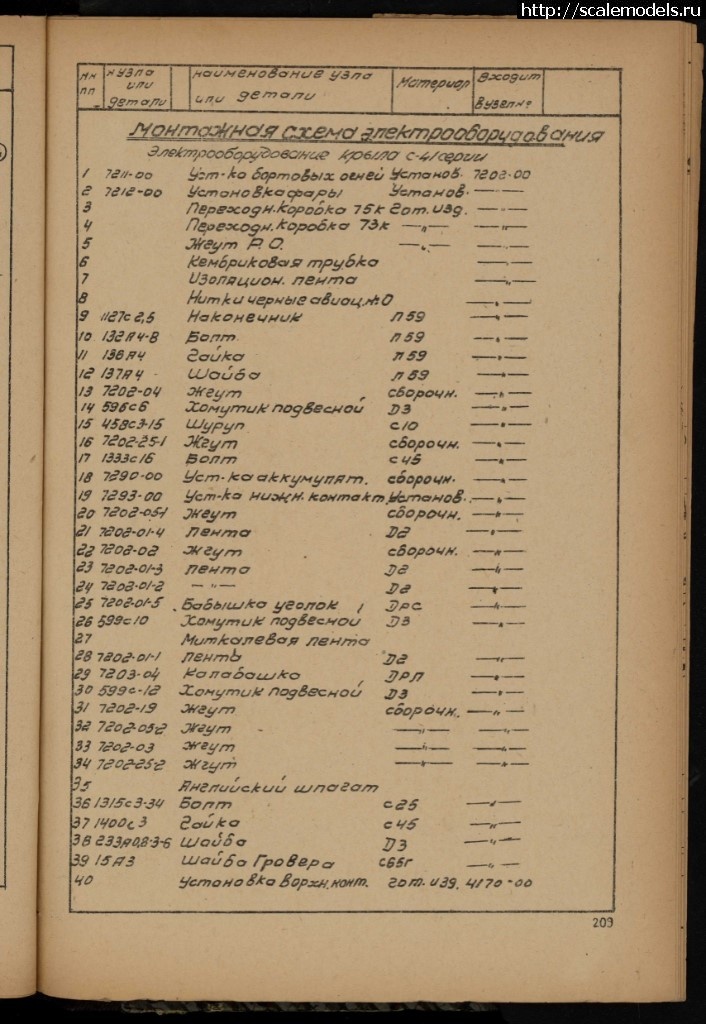 http://scalemodels.ru
№№ пп № узла или детали наименование узла или детали Материал Входит в узел №
Монтажная схема электрооборудования
Электрооборудование крыла с-41 серии
1 7211-00 Уст-ка бортовых огней Установ. 7202-00
2 7212-00 Установка фары Установ. —"—
3 Переходн. коробка 75к Гот. изд. —"—
4 Переходн. коробка 73к —"— —"—
5 Жгут Р.О. —"— —"—
6 Кембриковая трубка —"—
7 Изоляцион. лента —"—
8 Нитки черные авиац. №0 —"—
9 1127с2,5 Наконечник Л59 —"—
10 132А4-8 Болт Л59 —"—
11 136А4 Гайка Л59 —"—
12 137А4 Шайба Л59 —"—
13 7202-04 Жгут сборочн. —"—
14 596с6 Хомутик подвесной Д3 —"—
15 458с3-15 Шуруп с10 —"—
16 7202-25-1 Жгут сборочн. —"—
17 1333с16 Болт с45 —"—
18 7290-00 Уст-ка аккумулят. сборочн. —"—
19 7293-00 Уст-ка нижн. контакт. Установ. —"—
20 7202-05-1 Жгут сборочн. —"—
21 7202-01-4 лента Д2 —"—
22 7202-02 Жгут сборочн. —"—
23 7202-01-3 лента Д2 —"—
24 7202-01-2 —"— Д2 —"—
25 7202-01-5 Бабышка уголок Дрс —"—
26 599с10 Хомутик подвесной Д3 —"—
27 Миткалевая лента
28 7202-01-1 лента Д2 —"—
29 7203-04 Калабашка ДРЛ —"—
30 599с-12 Хомутик подвесной Д3 —"—
31 7202-19 Жгут сборочн. —"—
32 7202-05-2 Жгут —"— —"—
33 7202-03 Жгут —"— —"—
34 7202-25-2 Жгут —"— —"—
35 Английский шпагат
36 1315с3-34 Болт с25 —"—
37 1400с3 Гайка с45 —"—
38 233А0,8-3-6 Шайба Д3 —"—
39 15А3 Шайба Гровера с65г —"—
40 Установка ворхн. конт. гот. изд. 4170-00
209